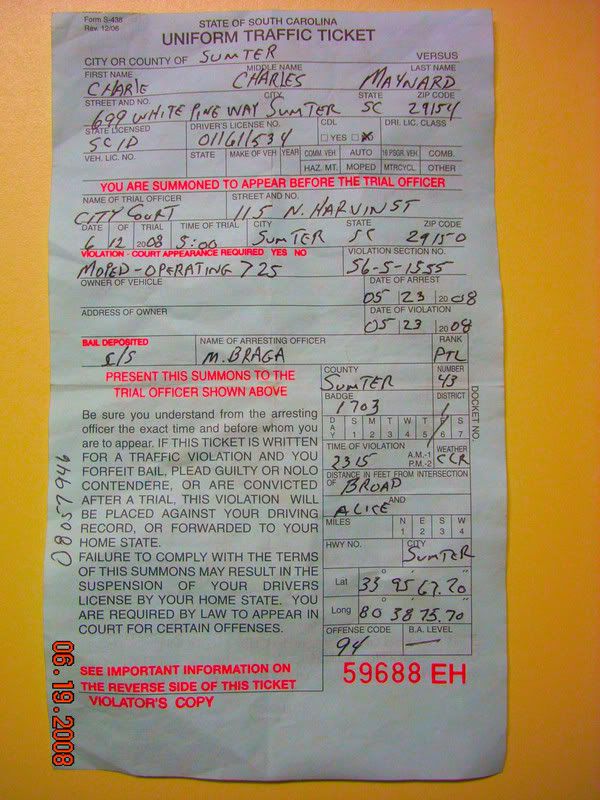 Form S-438
Rev. 12/06
STATE OF SOUTH CAROLINA
UNIFORM TRAFFIC TICKET
CITY OR COUNTY OF SUMTER VERSUS
FIRST NAME MIDDLE NAME LAST NAME
CHARlE CHARLES MAYNARD
STREET AND NO. CITY STATE ZIP CODE
699 WHITE PINE WAY SUMTER SC 29154
STATE LICENSED DRIVER'S LICENSE NO. CDL DRI. LIC. CLASS
SCID 011611534 YES X
VEH. LIC. NO. STATE MAKE OF VEH YEAR COMM. VEH AUTO 16 PSGR. VEH COMB.
HAZ. MT. MOPED MTRCYCL OTHER
YOU ARE SUMMONED TO APPEAR BEFORE THE TRIAL OFFICER
NAME OF TRIAL OFFICER STREET AND NO.
CITY COURT 115 N. HARVIN ST
DATE OF TRIAL TIME OF TRIAL CITY STATE ZIP CODE
6 12 2008 5:00 SUMTER SC 29150
VIOLATION - COURT APPEARANCE REQUIRED YES NO VIOLATION SECTION NO.
MOPED-OPERATING 725 56-5-1555
OWNER OF VEHICLE DATE OF ARREST
05 23 2008
ADDRESS OF OWNER DATE OF VIOLATION
05 23 2008
BAIL DEPOSITED NAME OF ARRESTING OFFICER RANK
M. BRAGA PTL
PRESENT THIS SUMMONS TO THE
TRIAL OFFICER SHOWN ABOVE
COUNTY NUMBER
SUMTER 43
BADGE DISTRICT
1703 1
DOCKET NO.
DAY S M T W T F S
1 2 3 4 5 6 7
TIME OF VIOLATION A.M.-1 WEATHER
2315 P.M.-2 CLR
DISTANCE IN FEET FROM INTERSECTION
OF BROAD
AND
ALICE
MILES N E S W
1 2 3 4
HWY NO. CITY
SUMTER
Lat 33° 95 67.20"
Long 80° 38 75.70"
OFFENSE CODE B.A. LEVEL
94 —
Be sure you understand from the arresting
officer the exact time and before whom you
are to appear. IF THIS TICKET IS WRITTEN
FOR A TRAFFIC VIOLATION AND YOU
FORFEIT BAIL, PLEAD GUILTY OR NOLO
CONTENDERE, OR ARE CONVICTED
AFTER A TRIAL, THIS VIOLATION WILL
BE PLACED AGAINST YOUR DRIVING
RECORD, OR FORWARDED TO YOUR
HOME STATE.
FAILURE TO COMPLY WITH THE TERMS
OF THIS SUMMONS MAY RESULT IN THE
SUSPENSION OF YOUR DRIVERS
LICENSE BY YOUR HOME STATE. YOU
ARE REQUIRED BY LAW TO APPEAR IN
COURT FOR CERTAIN OFFENSES.
08057946
SEE IMPORTANT INFORMATION ON
THE REVERSE SIDE OF THIS TICKET
VIOLATOR'S COPY
59688 EH
06.19.2008